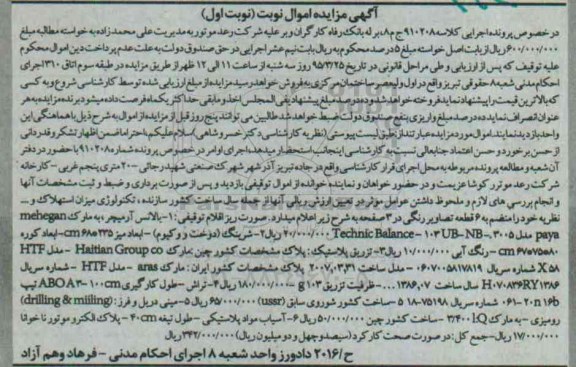 آگهی مزایده اموال نوبت (نوبت اول)
در خصوص پرونده اجرایی کلاسه ۹۱۰۲۰۸ ج م۸ بر له بانک رفاه کارگران و بر علیه شرکت رعد موتور به مدیریت علی محمدزاده به خواسته مطالبه مبلغ
۶۰۰/۰۰۰/۰۰۰ ریال از بابت اصل خواسته مبلغ ۵ درصد محکوم به ریال بابت نیم عشر اجرایی در حق صندوق دولت به علت عدم پرداخت دین اموال محکوم
علیه توقیف که پس از ارزیابی و طی مراحل قانونی در تاریخ ۹۵/۳/۲۵ روز سه شنبه از ساعت ۱۱ الی ۱۲ ظهر از طریق مزایده در طبقه سوم اتاق ۳۱۰ اجرای
احکام مدنی شعبه ۸ حقوقی تبریز واقع در اول ولیعصر ساختمان مرکزی به فروش خواهد رسید مزایده از مبلغ ارزیابی شده توسط کارشناسی شروع و به کسی
که بالاترین قیمت را پیشنهاد نماید فروخته خواهد شد و ده درصد مبلغ پیشنهادی فی المجلس اخذ و مابقی حداکثر یک ماه فرصت داده میشود برنده مزایده به هر
عنوان انصراف نماید ده درصد مبلغ واریزی بنفع صندوق دولت ضبط خواهد شد طالبین می توانند پنج روز قبل از مزایده از اموال به شرح ذیل با هماهنگی این
واحد بازدید نمایند اموال مورد مزایده عبارتند از: طبق لیست پیوستی (نظریه کارشناسی دکتر خسروشاهی) سلام علیکم با احترام ضمن اظهار تشکر و قدردانی
از حسن برخورد و حسن اعتماد جنابعالی نسبت به کارشناسی اینجانب استحضار میدهد: اجرای اوامر در خصوص پرونده شماره ۹۱۰۲۰۸ با حضور در دفتر
آن شعبه و مطالعه پرونده مربوطه به محل اجرای قرار کارشناسی واقع در جاده تبریز آذرشهر شهرک صنعتی شهید رجائی - ۲۰ متری پنجم غربی - کارخانه
شرکت رعد موتور کوشا عزیمت و در حضور خواهان و نماینده خوانده از اموال توقیفی بازدید و پس از صورت برداری و ضبط و ثبت مشخصات آنها
و انجام بررسی های لازم و ملحوظ داشتن عوامل موثر در تعیین ارزش ریالی آنها از جمله سال ساخت کشور سازنده، تکنولوژی میزان استهلاک و ...
نظریه خود را منضم به ۶ قطعه تصاویر رنگی در ۳ صفحه به شرح زیر اعلام میدارد. صورت ریز اقلام توقیفی: ۱- بالانس آرمیچر، به مارک mehegan
paya مدل Technic Balance - ۱۰۳ UB- NB-. ۳۰۰۵ ۲۰/۰۰۰/۰۰۰ ریال ۲- شرینگ (دوخت و کیوم) - ابعاد میز cm ۶۸*۳۳۵-ابعاد کوره
cm ۶۷*۷۵*۸۰ - رنگ آبی ۱۰/۰۰۰/۰۰۰ ریال ۳- تزریق پلاستیک: پلاک مشخصات کشور چین: مارک Haitian Group co - مدل HTF
X ۵۸ شماره سریال ۰۶۰۷۰۰۵۸۱۷۸۱۹ - مدل ساخت ۲۰۰۷,۰۳,۳۱ پلاک مشخصات کشور ایران: مارک aras - مدل HTF - شماره سریال
H۰۷۰۸۳۶RY۱۳۸۶ سال ساخت ۱۳۸۶,۰۷... ظرفیت تزریق g ۱۰۳ - ۱۸۰/۰۰۰/۰۰۰ ریال ۴- تراش - طول کارگیری ABO A۳- ۱۰۰cm تیپ
۰۶۱-۲۰n ۱۶b شماره سریال ۷۵۱۹۸-۱۸ ۵- ساخت کشور شوروی سابق (ussr) ۶۵/۰۰۰/۰۰۰ ریال ۵- مینی دریل و فرز: (drilling & miiling)
رومیزی - به مارک ۳/۴۰۰ lQ - ساخت کشور چین ۵۰/۰۰۰/۰۰۰ ریال ۶- آسیاب مواد پلاستیکی - طول تیغه ۴۰cm - پلاک الکتروموتور ناخوانا
۱۷/۰۰۰/۰۰۰ ریال - جمع کل: در صورت صحت کارکرد (سیصد و چهل و دو میلیون ریال) ۳۴۲/۰۰۰/۰۰۰ ریال
ح/۲۰۱۶ دادورز واحد شعبه ۸ اجرای احکام مدنی - فرهاد وهم آزاد